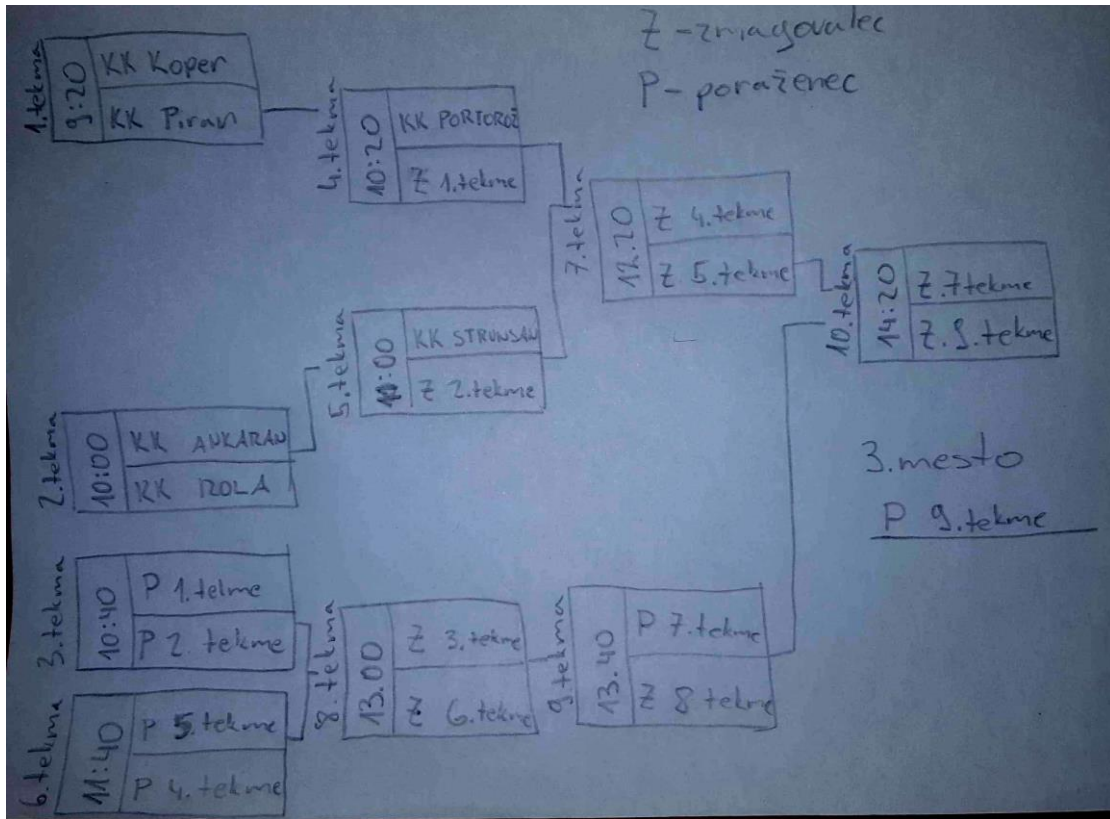 Z - zmagovalec
P - poraženec
1.tekma
9:20
KK Koper
KK Piran
4.tekma
10:20
KK PORTOROŽ
Z 1.tekme
7.tekma
12.20
Z 4.tekme
Z 5.tekme
10.tekma
14:20
Z.7tekme
Z.9.tekme
5.tekma
11:00
KK STRUNJAN
Z 2.tekme
2.tekma
10:00
KK ANKARAN
KK IZOLA
3.mesto
P 9.tekme
3.tekma
10:40
P 1.telme
P 2. tekme
8.tekma
13.00
Z 3.tekme
Z 6.tekme
9.tekma
13.40
P 7.tekme
Z 8 tekme
6.tekma
11:40
P 5.tekme
P 4.tekme